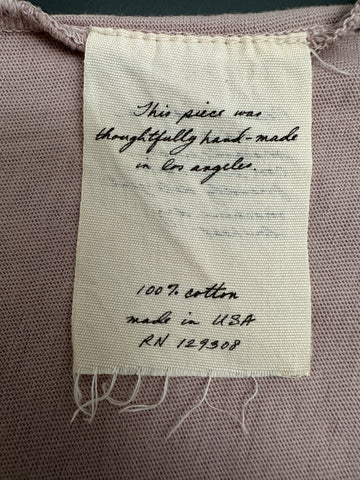 This piece was
thoughtfully hand-made
in los angeles.
100% cotton
made in USA
RN 129308